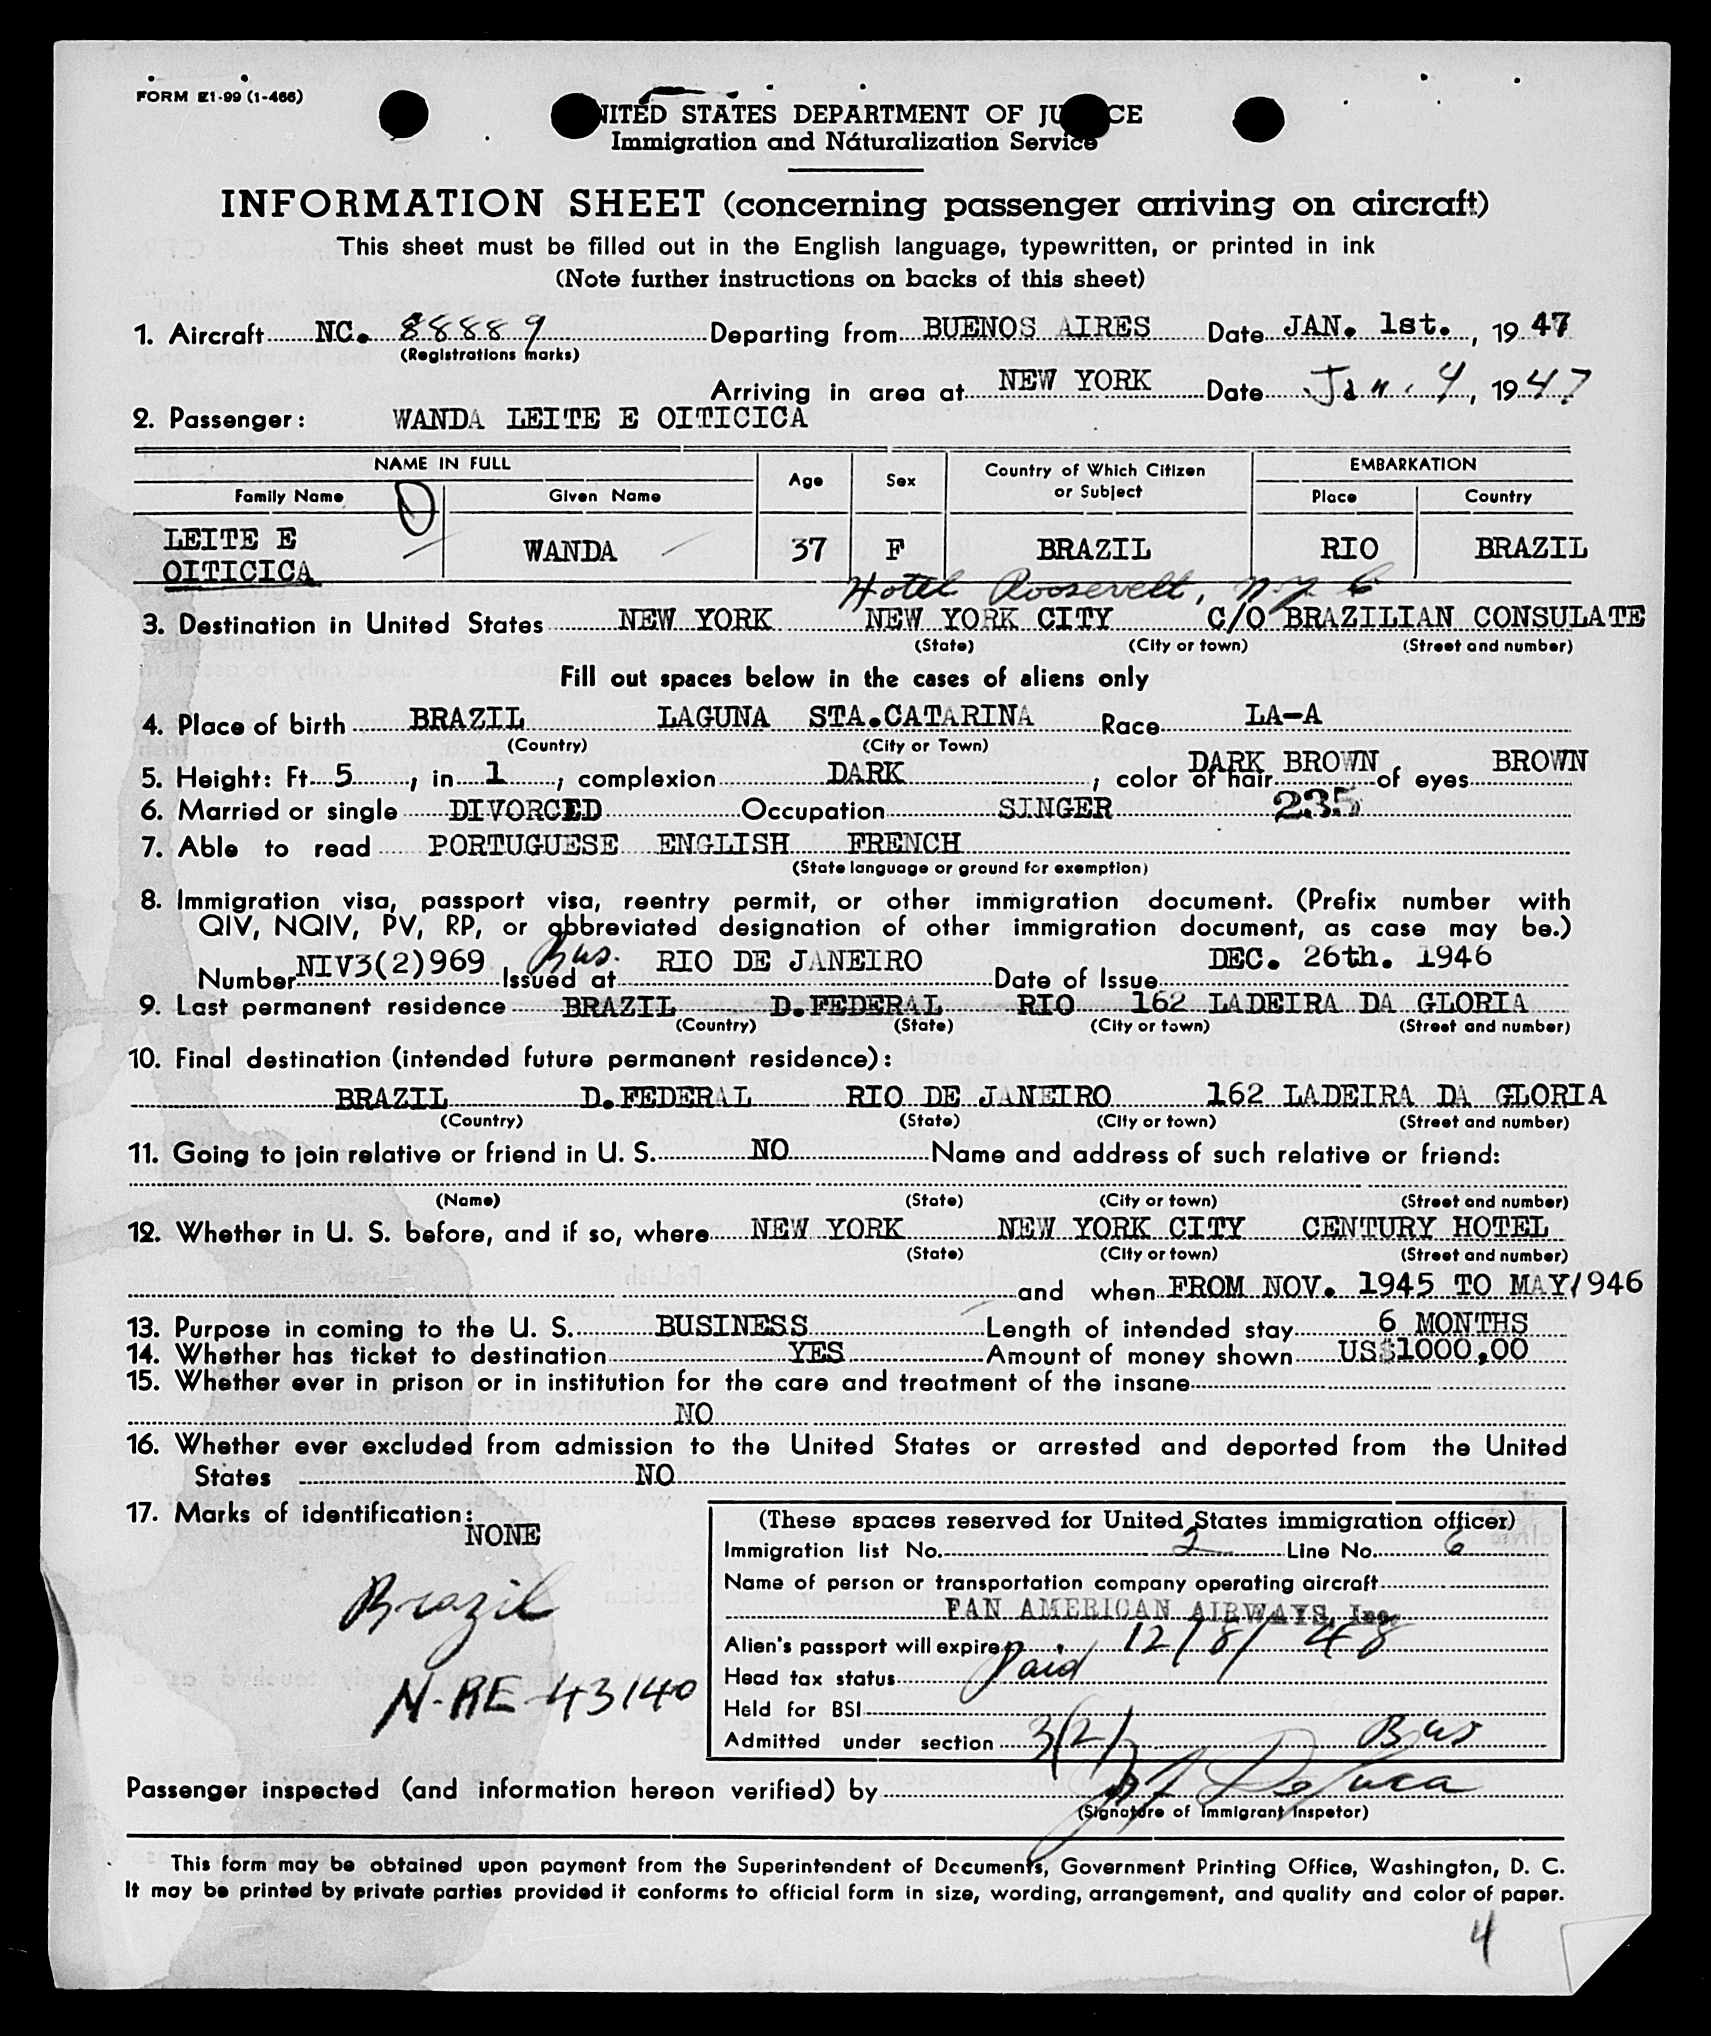 FORM EI-99 (1-466)
UNITED STATES DEPARTMENT OF JUSTICE
Immigration and Naturalization Service
INFORMATION SHEET (concerning passenger arriving on aircraft)
This sheet must be filled out in the English language, typewritten, or printed in ink
(Note further instructions on backs of this sheet)
1. Aircraft NC. 88889 Departing from BUENOS AIRES Date JAN. 1st., 1947
(Registrations marks)
Arriving in area at NEW YORK Date Jan. 4, 1947
2. Passenger: WANDA LEITE E OITICICA
NAME IN FULL Age Sex Country of Which Citizen or Subject EMBARKATION
Family Name Given Name Place Country
LEITE E OITICICA WANDA 37 F BRAZIL RIO BRAZIL
Hotel Roosevelt, N.Y.C
3. Destination in United States NEW YORK NEW YORK CITY C/O BRAZILIAN CONSULATE
(State) (City or town) (Street and number)
Fill out spaces below in the cases of aliens only
4. Place of birth BRAZIL LAGUNA STA.CATARINA Race LA-A
(Country) (City or Town)
5. Height: Ft. 5, in. 1; complexion DARK; color of hair DARK BROWN of eyes BROWN
6. Married or single DIVORCED Occupation SINGER 235
7. Able to read PORTUGUESE ENGLISH FRENCH
(State language or ground for exemption)
8. Immigration visa, passport visa, reentry permit, or other immigration document. (Prefix number with
QIV, NQIV, PV, RP, or abbreviated designation of other immigration document, as case may be.)
Number NIV3(2)969 Bus. Issued at RIO DE JANEIRO Date of Issue DEC. 26th. 1946
9. Last permanent residence BRAZIL D.FEDERAL RIO 162 LADEIRA DA GLORIA
(Country) (State) (City or town) (Street and number)
10. Final destination (intended future permanent residence):
BRAZIL D.FEDERAL RIO DE JANEIRO 162 LADEIRA DA GLORIA
(Country) (State) (City or town) (Street and number)
11. Going to join relative or friend in U. S. NO Name and address of such relative or friend:
(Name) (State) (City or town) (Street and number)
12. Whether in U. S. before, and if so, where NEW YORK NEW YORK CITY CENTURY HOTEL
(State) (City or town) (Street and number)
and when FROM NOV. 1945 TO MAY/946
13. Purpose in coming to the U. S. BUSINESS Length of intended stay 6 MONTHS
14. Whether has ticket to destination YES Amount of money shown US$1000,00
15. Whether ever in prison or in institution for the care and treatment of the insane
NO
16. Whether ever excluded from admission to the United States or arrested and deported from the United
States NO
17. Marks of identification:
NONE
Brazil
N-RE-43140
(These spaces reserved for United States immigration officer)
Immigration list No. 2 Line No. 6
Name of person or transportation company operating aircraft
PAN AMERICAN AIRWAYS, Inc.
Alien's passport will expire 12/8/48
Head tax status Paid
Held for BSI
Admitted under section 3(2) Bus
Passenger inspected (and information hereon verified) by
(Signature of Immigrant Inspetor)
This form may be obtained upon payment from the Superintendent of Documents, Government Printing Office, Washington, D. C.
It may be printed by private parties provided it conforms to official form in size, wording, arrangement, and quality and color of paper.
4